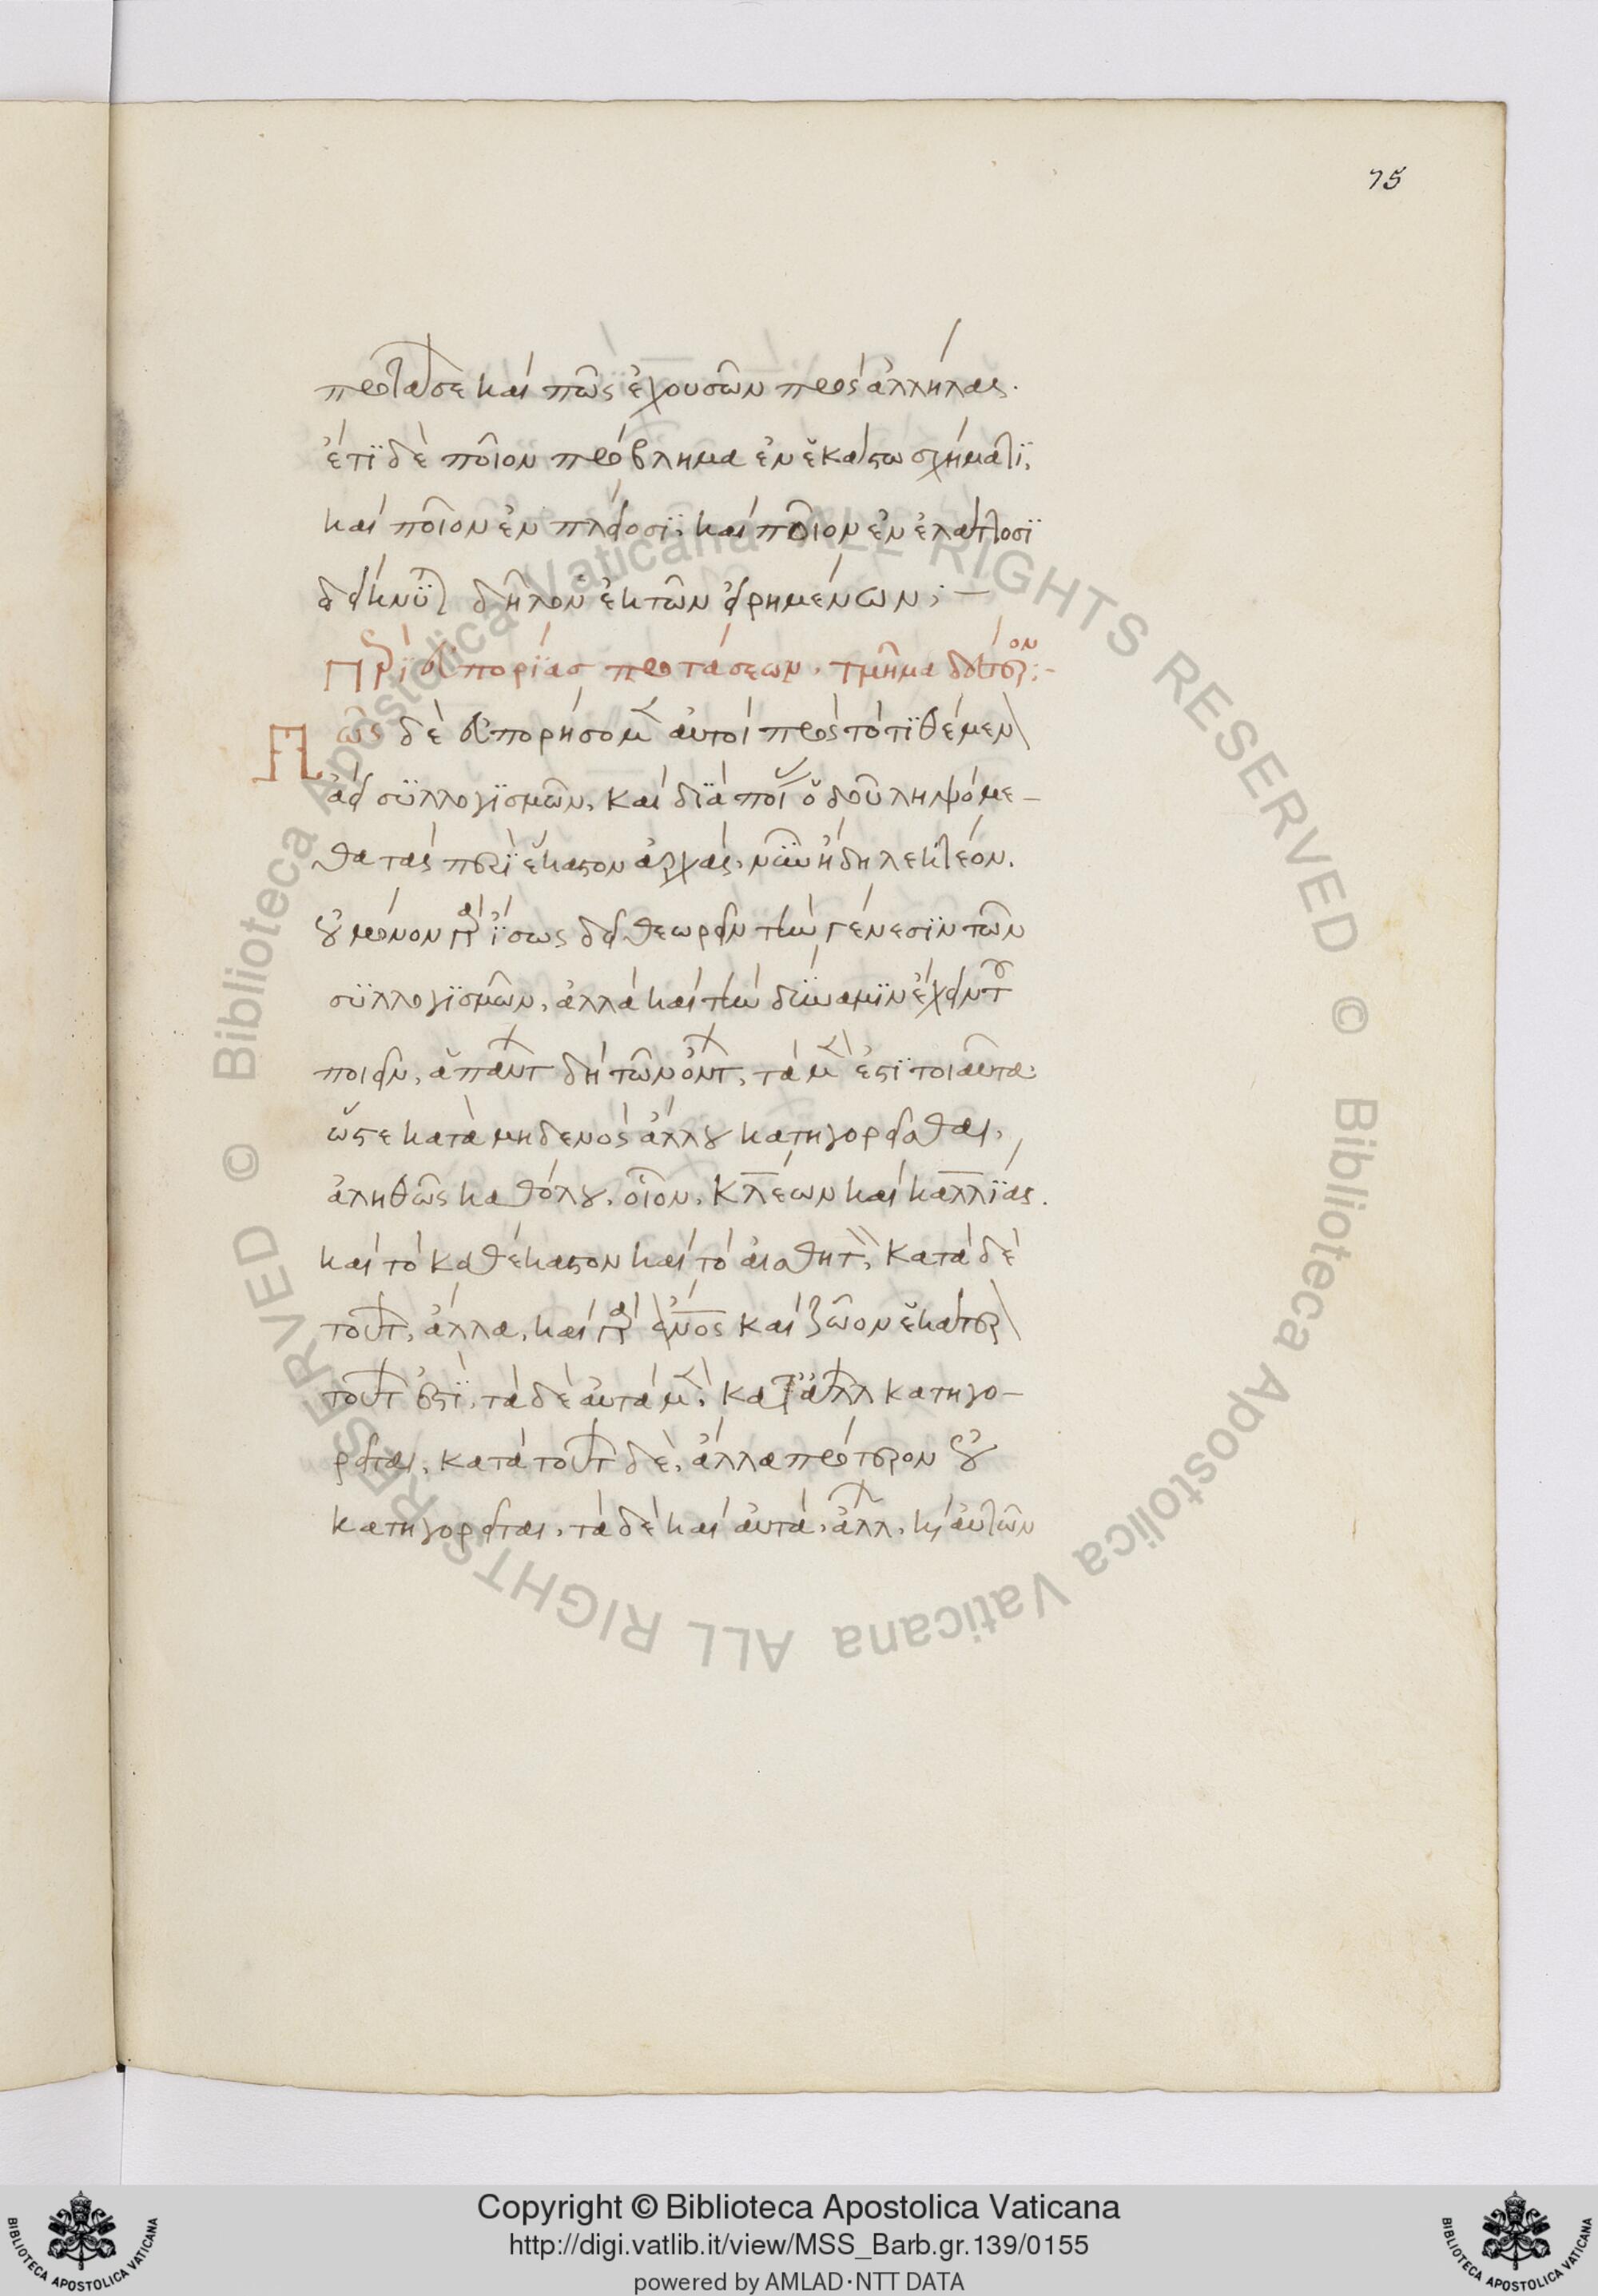 75
προτάσε(ων) καὶ πῶς ἐχουσῶν πρὸς ἀλλήλας.
ἔτϊ δὲ ποῖον πρόβλημα ἐν ἑκάστω σχήματϊ,
καὶ ποῖον ἐν πλείοσϊ, καὶ ποῖον ἐν ἐλάττοσϊ
δείκνϋται δῆλον ἐκ τῶν εἰρημένων; —
Περὶ εὐπορίας προτάσεων. τμῆμα δεύτερον:-
Πῶς δὲ εὐπορήσομεν αὐτοὶ πρὸς τὸ τϊθέμενον
ἀεὶ σϋλλογϊσμῶν, καὶ δϊὰ ποίας ὁδοῦ ληψόμε-
θα τὰς περὶ ἕκαστον ἀρχάς, νῦν ἤδη λεκτέον.
οὐ μόνον γὰρ ἴσως δεῖ θεωρεῖν τὴν γένεσϊν τῶν
σϋλλογϊσμῶν, ἀλλὰ καὶ τὴν δύναμϊν ἔχειν τοῦ
ποιεῖν, ἁπάντων δὴ τῶν ὄντων, τὰ μὲν ἐστϊ τοιαῦτα
ὥστε κατὰ μηδενὸς ἄλλου κατηγορεῖσθαι,
ἀληθῶς καθόλου, οἷον, Κλέων καὶ Καλλίας.
καὶ τὸ καθέκαστον καὶ τὸ αἰσθητὸν, κατὰ δὲ
τούτων, ἄλλα, καὶ γὰρ ἄνος καὶ ζῶον ἑκάτερον
τούτων ἐστϊ, τὰ δὲ αὐτὰ μὲν, κατ' ἄλλων κατηγο-
ρεῖται, κατὰ τούτων δὲ, ἄλλα πρότερον οὐ
κατηγορεῖται, τὰ δὲ καὶ αὐτὰ, ἄλλων, καὶ αὐτῶν
© Biblioteca Apostolica Vaticana ALL RIGHTS RESERVED © Biblioteca Apostolica Vaticana ALL RIGHTS RESERVED
Copyright © Biblioteca Apostolica Vaticana
http://digi.vatlib.it/view/MSS_Barb.gr.139/0155
powered by AMLAD·NTT DATA
BIBLIOTECA APOSTOLICA VATICANA
BIBLIOTECA APOSTOLICA VATICANA